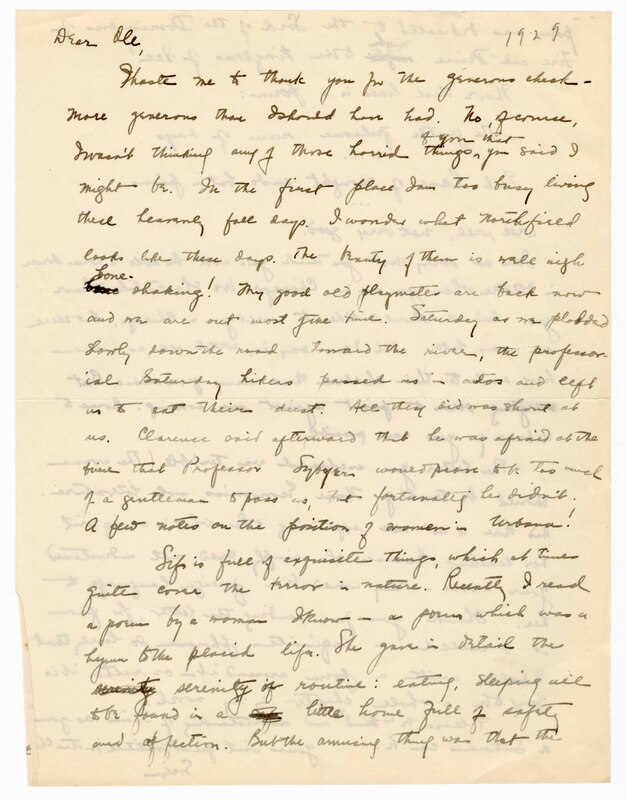 1929
Dear Ole,
Haste me to thank you for the generous check -
more generous than I should have had. No, of course,
of you that
I wasn't thinking any of those horrid things, you said I
might be. In the first place I am too busy living
these heavenly fall days. I wonder what Northfield
looks like these days. The beauty of them is well nigh
bone-
shaking! My good old playmates are back now
and we are out most fine time. Saturday as we plodded
slowly down the road toward the river, the professor-
ial Saturday hikers passed us in autos and left
us to eat their dust. All they did was shout at
us. Clarence said afterward that he was afraid at the
time that Professor would prove to be too much
of a gentleman to pass us, but fortunately he didn't.
A few notes on the position of women in Urbana!
Life is full of exquisite things, which at times
quite cover the terror in nature. Recently I read
a poem by a woman I know - a poem which was a
hymn to the placid life. She gave in detail the
serenity serenity of routine: eating, sleeping all
to be found in a little home full of safety
and affection. But the amusing thing was that the